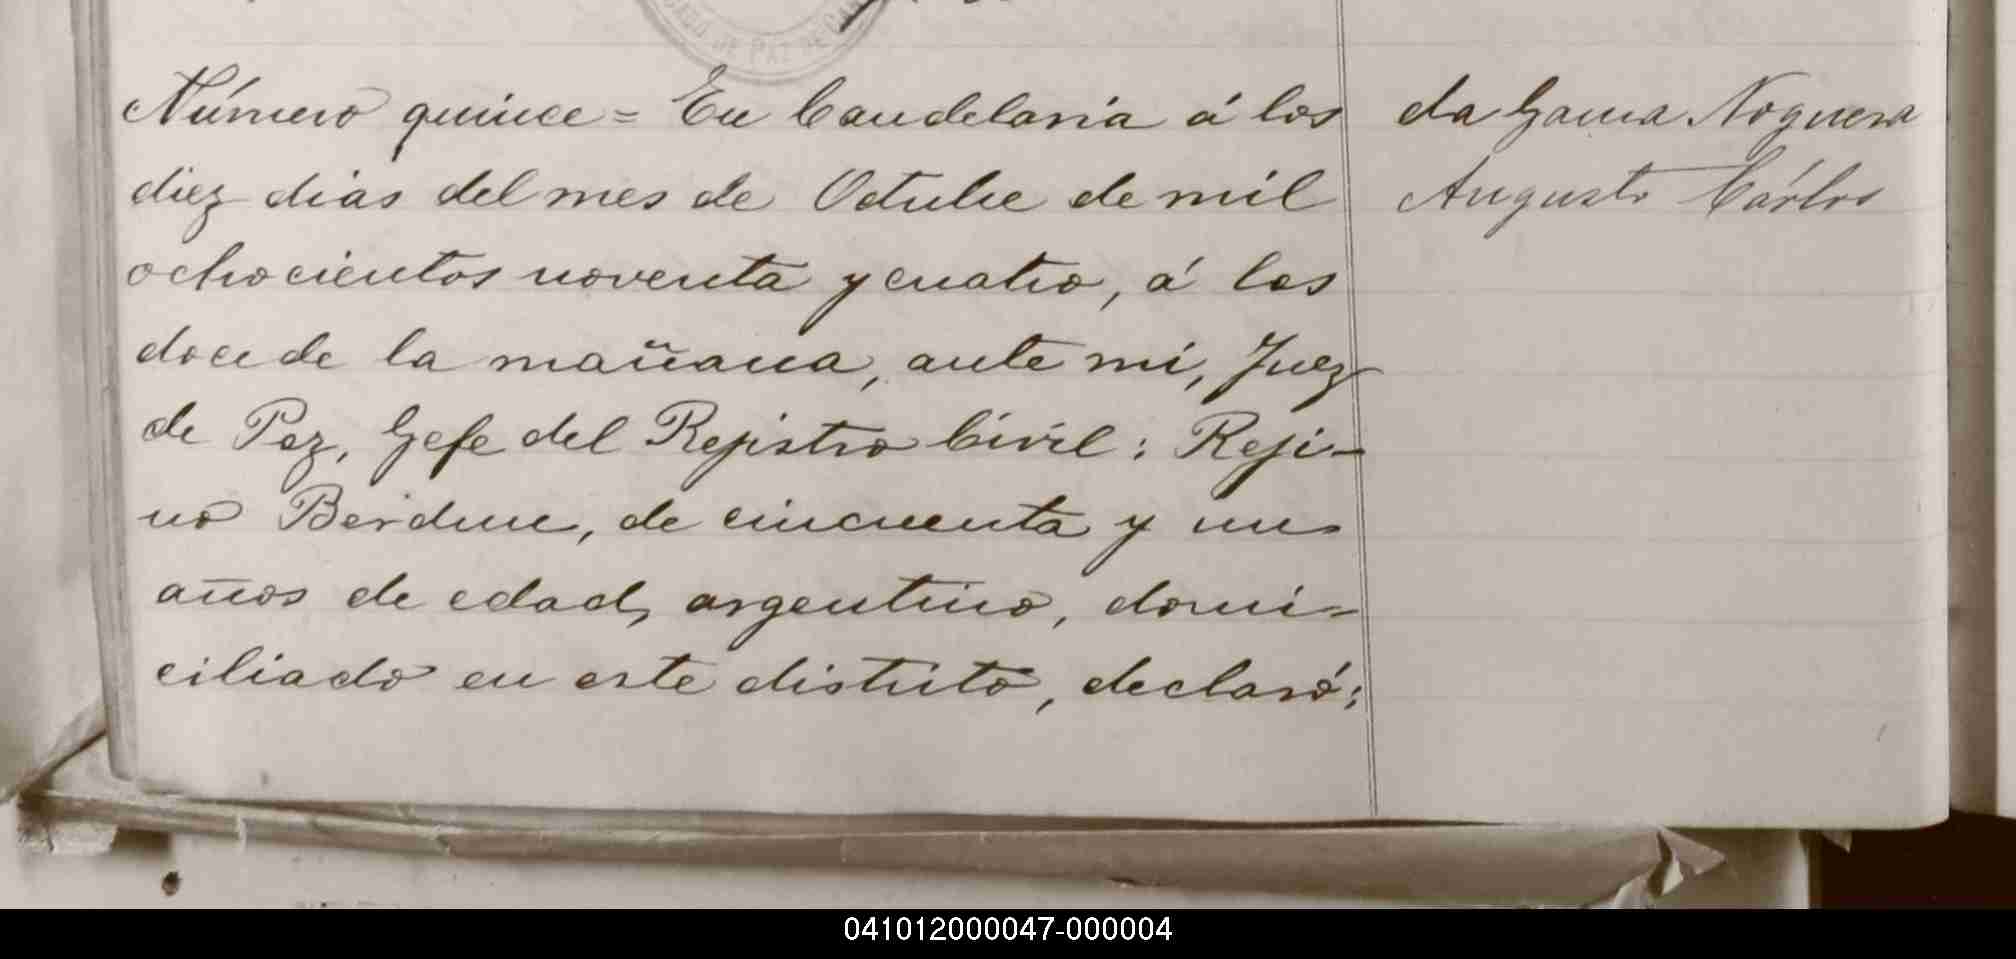 JUZGADO DE PAZ DE CAN
Número quince = En Candelaria á los
diez dias del mes de Octubre de mil
ochocientos noventa y cuatro, á las
doce de la mañana, ante mi, Juez
de Paz, Gefe del Rejistro Civil: Reji-
no Berdun, de cincuenta y un
años de edad, argentino, domi-
ciliado en este distrito, declaró:
da Gama Noguera
Augusto Cárlos
041012000047-000004